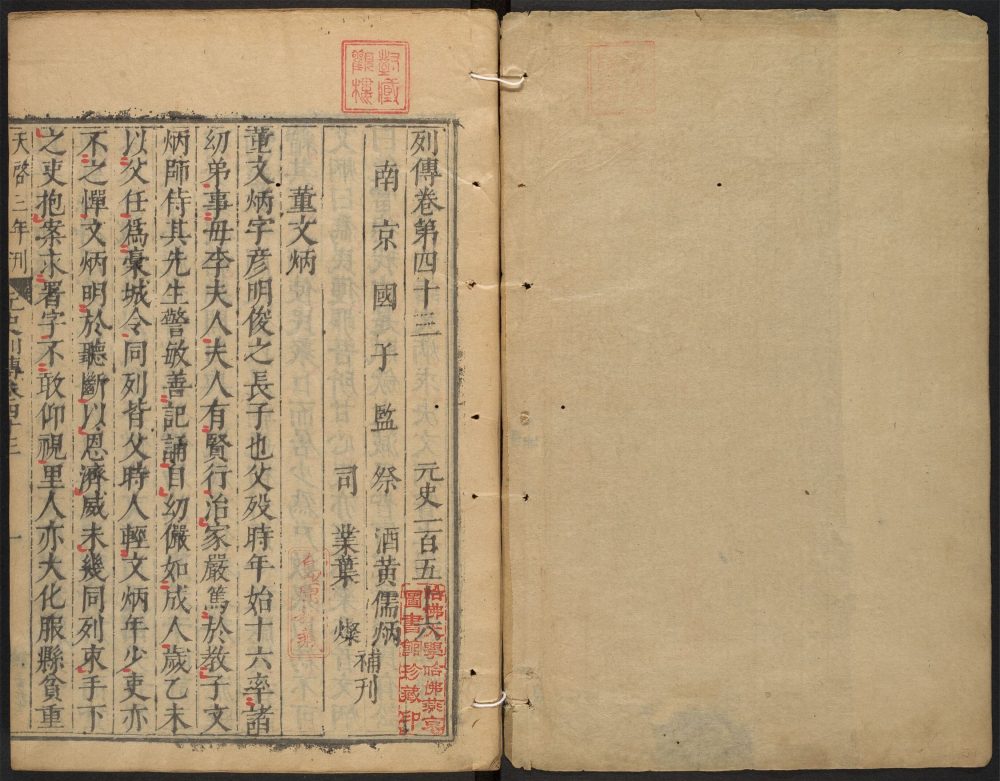 列傳卷第四十三 元史一百五十六
南京國子監祭酒黃儒炳
司業葉燦補刊
董文炳
董文炳字彥明俊之長子也父歿時年始十六率諸
幼弟事母李夫人夫人有賢行治家嚴篤於教子文
炳師侍其先生警敏善記誦自幼儼如成人歲乙未
以父任爲藁城令同列皆父時人輕文炳年少吏亦
不之憚文炳明於聽斷以恩濟威未幾同列束手下
之吏抱案求署字不敢仰視里人亦大化服縣貧重
天啓三年刊 元史列傳卷四十三 一
哈佛大學哈佛燕京
圖書館珍藏印